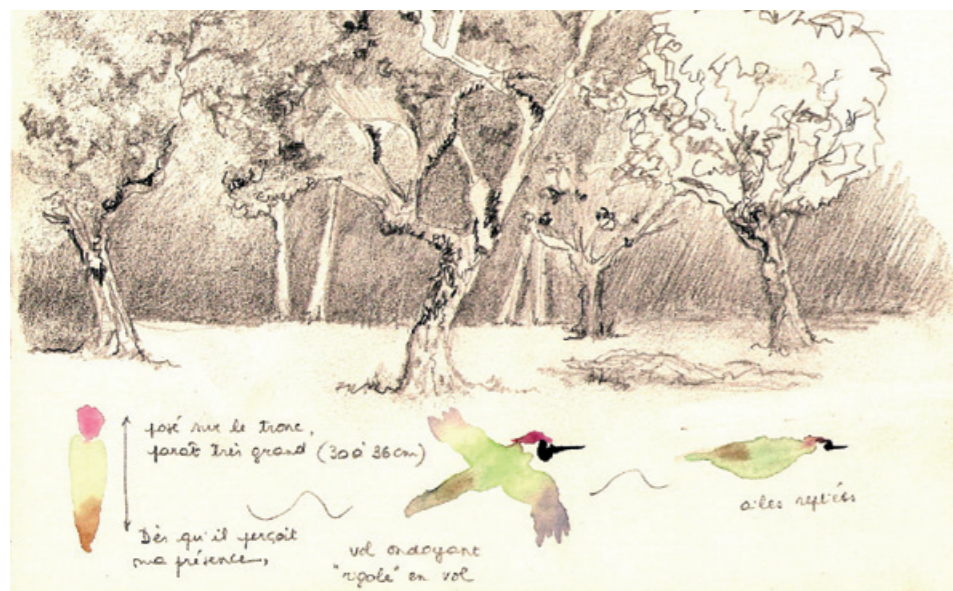 posé sur le tronc,
paraît très grand (30 à 36cm)
Dès qu'il perçoit
ma présence,
vol ondoyant
"rigole" en vol
ailes repliées